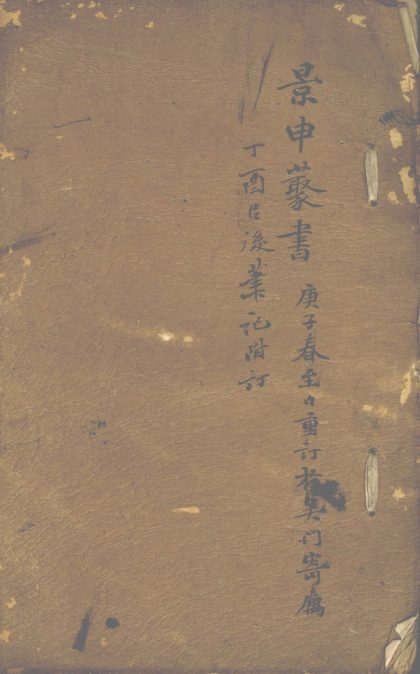 景申叢書 庚子春至日重訂於吳門寄廬
丁酉㠯後葉記附訂